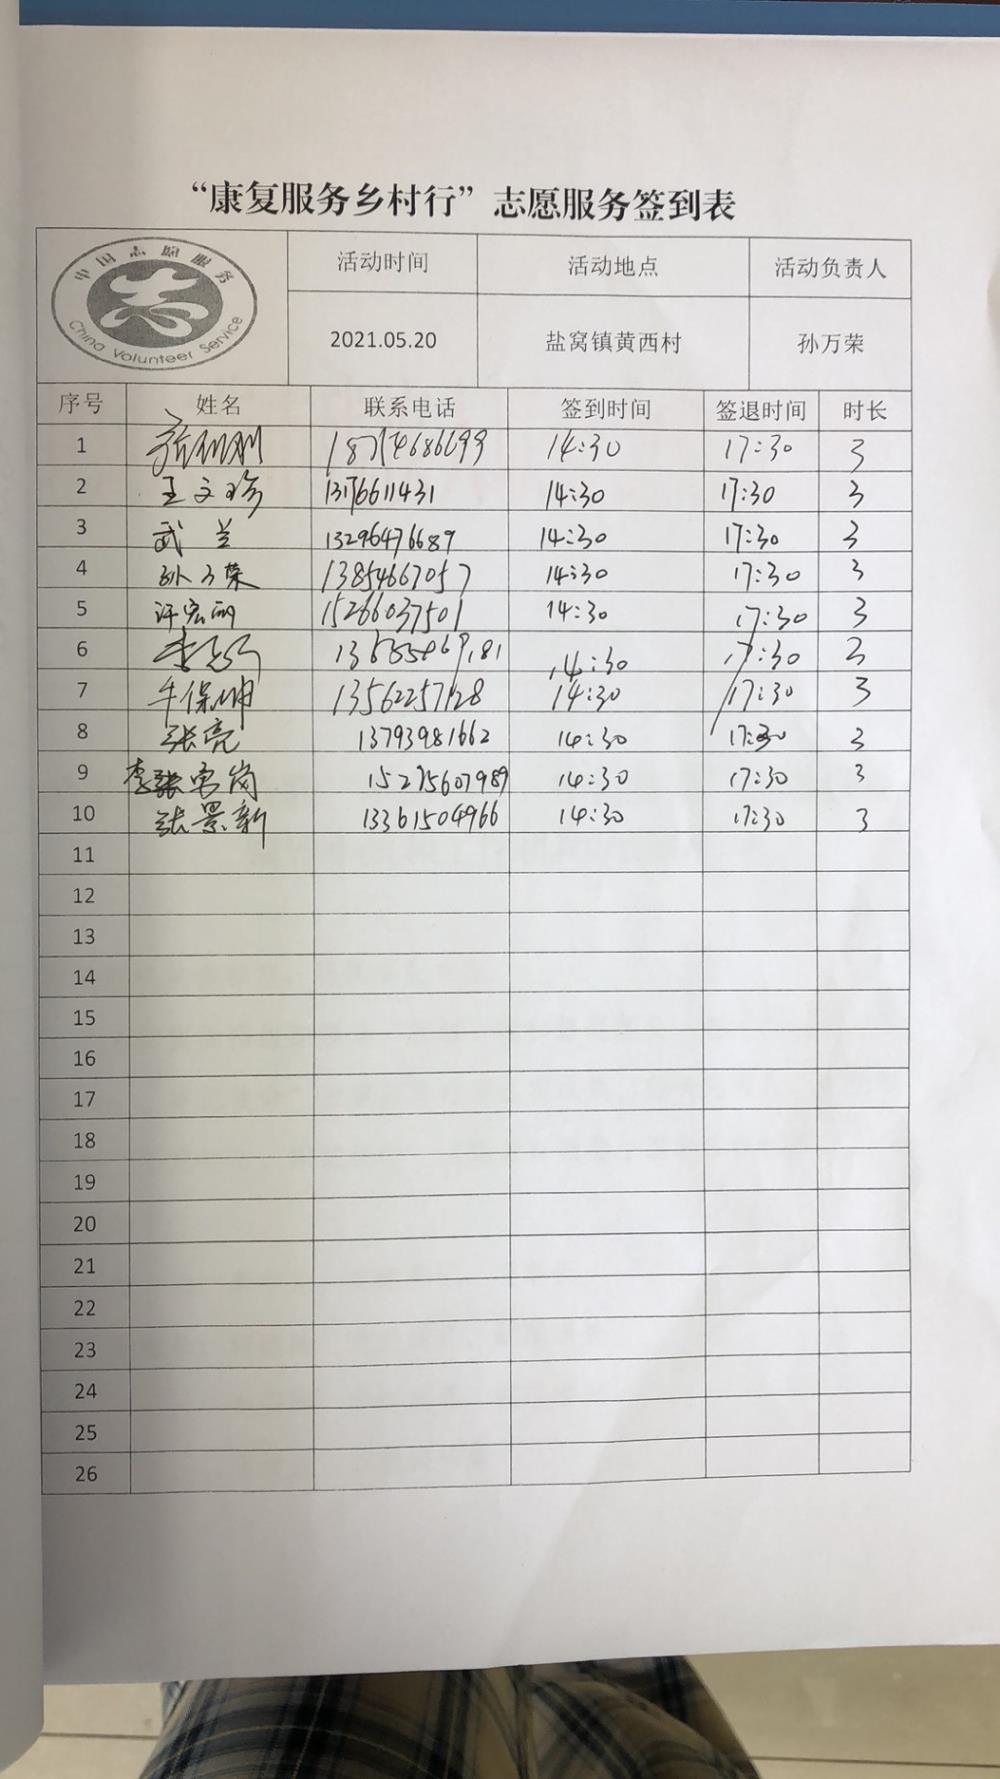 “康复服务乡村行”志愿服务签到表
中国志愿服务
China Volunteer Service
活动时间 活动地点 活动负责人
2021.05.20 盐窝镇黄西村 孙万荣
序号 姓名 联系电话 签到时间 签退时间 时长
1 14:30 17:30 3
2 王文珍 13176611431 14:30 17:30 3
3 武兰 13296476689 14:30 17:30 3
4 孙万荣 13854667057 14:30 17:30 3
5 许宏丽 15266037501 14:30 17:30 3
6 14:30 17:30 3
7 牛保坤 13562257128 14:30 17:30 3
8 张亮 13793981662 14:30 17:30 3
9 15275607989 14:30 17:30 3
10 张景新 13361504966 14:30 17:30 3
11
12
13
14
15
16
17
18
19
20
21
22
23
24
25
26